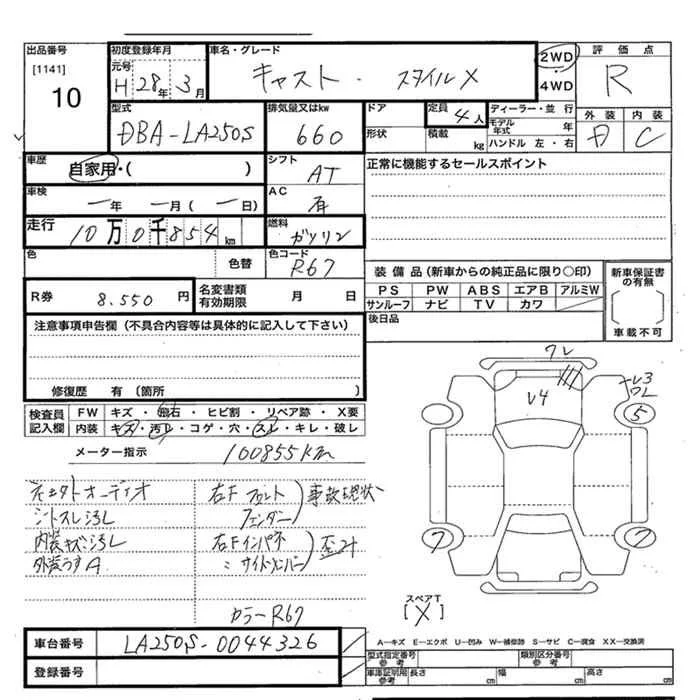 出品番号
[1141]
10
初度登録年月
元号
H 28年 3月
車名・グレード
キャスト・スタイルX
2WD
・
4WD
評価点
R
型式
DBA-LA250S
排気量又はkw
660
ドア
形状
定員
4人
積載
kg
ディーラー・並行
モデル年式
年
ハンドル 左・右
外装
内装
A
C
車歴
自家用・( )
シフト
AT
正常に機能するセールスポイント
車検
一年 一月(一日)
AC
有
走行
10万0千854km
燃料
ガソリン
色
色替
色コード
R67
装備品(新車からの純正品に限り〇印)
PS PW ABS エアB アルミW
サンルーフ ナビ TV カワ
新車保証書の有無
車載不可
R券
8.550円
名変書類有効期限
月 日
後日品
注意事項申告欄(不具合内容等は具体的に記入して下さい)
修復歴 有(箇所 )
検査員記入欄
FW キズ・飛石・ヒビ割・リペア跡・X要
内装 キズ・汚レ・コゲ・穴・スレ・キレ・破レ
メーター指示
100855km
ワレ
V4
V3
ワレ
5
7
7
社外オーディオ
シートスレ汚レ
内装キズ汚レ
外装うすA
右Fフロント
フェンダー
事故現状
右Fインパネ
〃サイドメンバー
カラーR67
スペアT
[X]
車台番号
LA250S-0044326
登録番号
A—キズ E—エクボ U—凹み W—補修跡 S—サビ C—腐食 XX—交換済
型式指定番号
参考
類別区分番号
参考
車庫証明用
参考
長さ
cm
幅
cm
高さ
cm